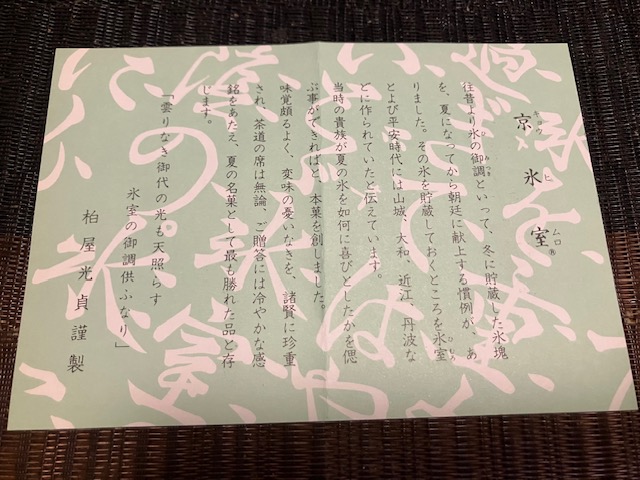 京氷室®
キョウヒムロ
往昔より氷の御調といって、冬に貯蔵した氷塊
を、夏になってから朝廷に献上する慣例が、あ
りました。その氷を貯蔵しておくところを氷室
とよび平安時代には山城、大和、近江、丹波な
どに作られていたと伝えています。
当時の貴族が夏の氷を如何に喜びとしたかを偲
ぶ事ができればと、本菓を創しました。
味覚頗るよく、変味の憂いなきを、諸賢に珍重
され、茶道の席は無論、ご贈答には冷やかな感
銘をあたえ、夏の名菓として最も勝れた品と存
じます。
「曇りなき御代の光も天照らす
氷室の御調供ふなり」
柏屋光貞謹製